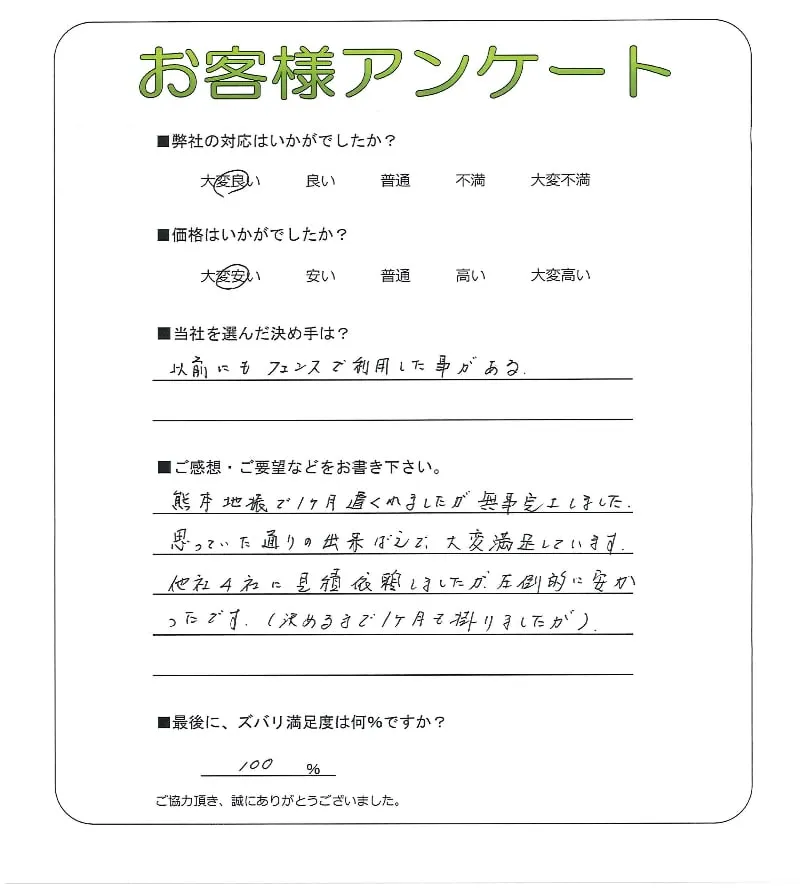 お客様アンケート
■弊社の対応はいかがでしたか？
大変良い 良い 普通 不満 大変不満
■価格はいかがでしたか？
大変安い 安い 普通 高い 大変高い
■当社を選んだ決め手は？
以前にもフェンスで利用した事がある.
■ご感想・ご要望などをお書き下さい。
熊本地震で1ヶ月遅くれましたが無事完工しました.
思っていた通りの出来ばえで、大変満足しています.
他社4社に見積依頼しましたが、圧倒的に安か
ったです.(決めるまで1ヶ月も掛りましたが).
■最後に、ズバリ満足度は何%ですか？
100 %
ご協力頂き、誠にありがとうございました。